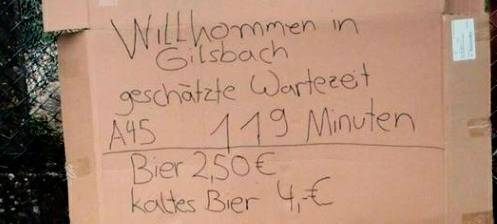 Willkommen in
Gilsbach
geschätzte Wartezeit
A45 119 Minuten
Bier 2,50€
kaltes Bier 4,-€